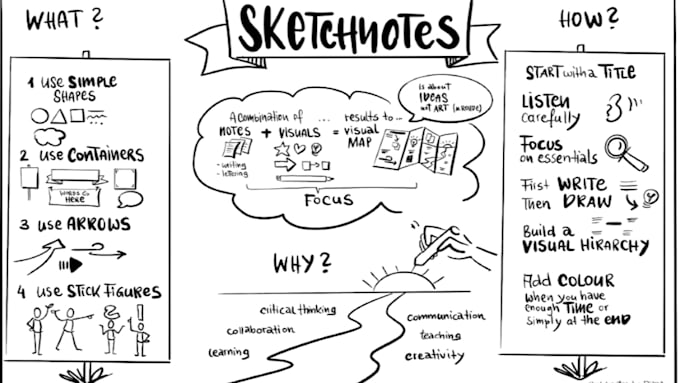 SKETCHNOTES
WHAT?
1 USE SIMPLE
SHAPES
2 USE CONTAINERS
WORDS GO
HERE
3 USE ARROWS
4 USE STICK FIGURES
A combination of ... results to ..
NOTES + VISUALS = VISUAL
MAP
- writing
- lettering
FOCUS
Is about
IDEAS
not ART (M.ROHDE)
WHY?
critical thinking
collaboration
learning
communication
teaching
creativity
HOW?
START with a TITLE
LISTEN
carefully
FOCUS
on essentials
First WRITE
Then DRAW
Build a
VISUAL HIRARCHY
Add COLOUR
when you have
enough TIME or
simply at the end